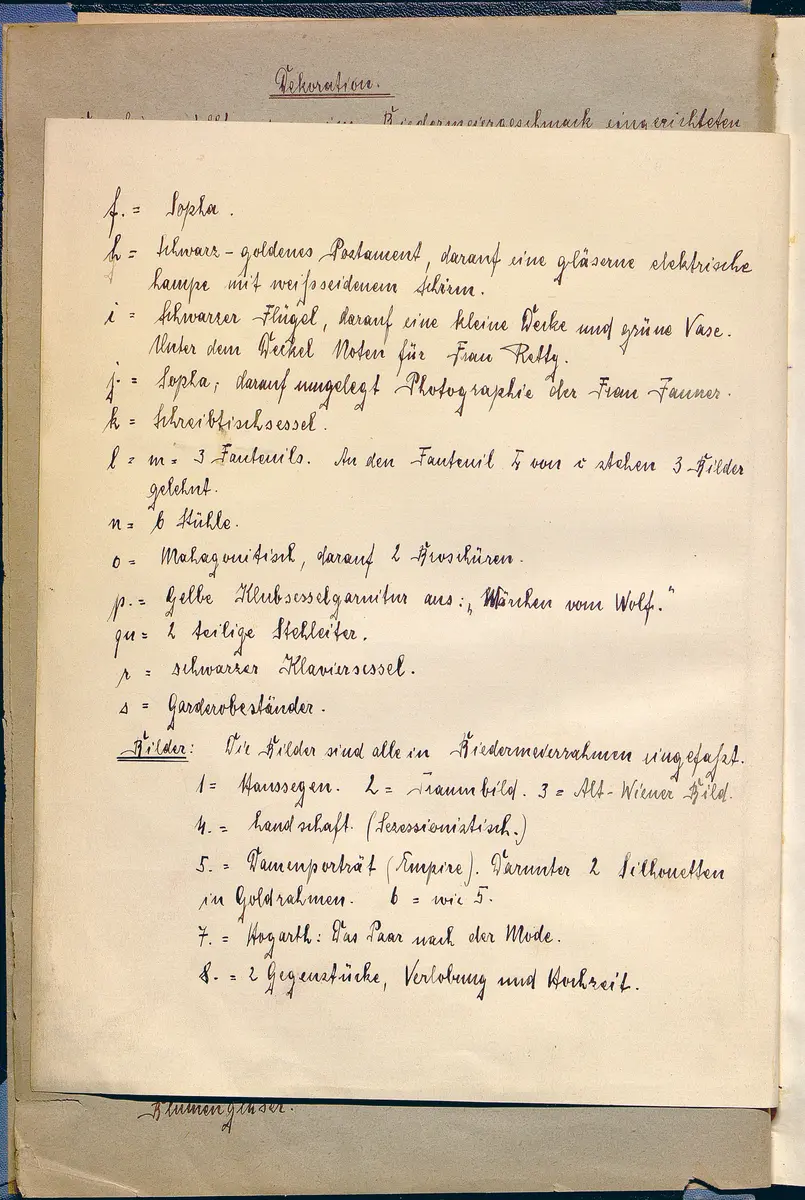 Dekoration.
Biedermeiergeschmack eingerichteten
f. = Sopha.
h = Schwarz-goldenes Postament, darauf eine gläserne elektrische
Lampe mit weißseidenem Schirm.
i = Schwarzer Flügel, darauf eine kleine Decke und grüne Vase.
Unter dem Deckel Noten für Frau Retty.
j. = Sopha; darauf umgelegt Photographie der Frau Fanner.
k = Schreibtischsessel.
l = m = 3 Fauteuils. An den Fauteuil I von v stehen 3 Bilder
gelehnt.
n = 6 Stühle.
o = Mahagonitisch, darauf 2 Broschüren.
p. = Gelbe Klubsesselgarnitur aus: „Märchen vom Wolf."
qu = 2 teilige Stehleiter.
r = schwarzer Klaviersessel.
s = Garderobeständer.
Bilder: Die Bilder sind alle in Biedermeyerrahmen eingefaßt.
1 = Haussegen. 2 = Traumbild. 3 = Alt-Wiener Bild.
4. = Landschaft. (Sezessionistisch.)
5. = Damenporträt (Empire). Darunter 2 Silhouetten
in Goldrahmen. 6 = wie 5.
7. = Hogarth: Das Paar nach der Mode.
8. = 2 Gegenstücke, Verlobung und Hochzeit.
Blumengläser.